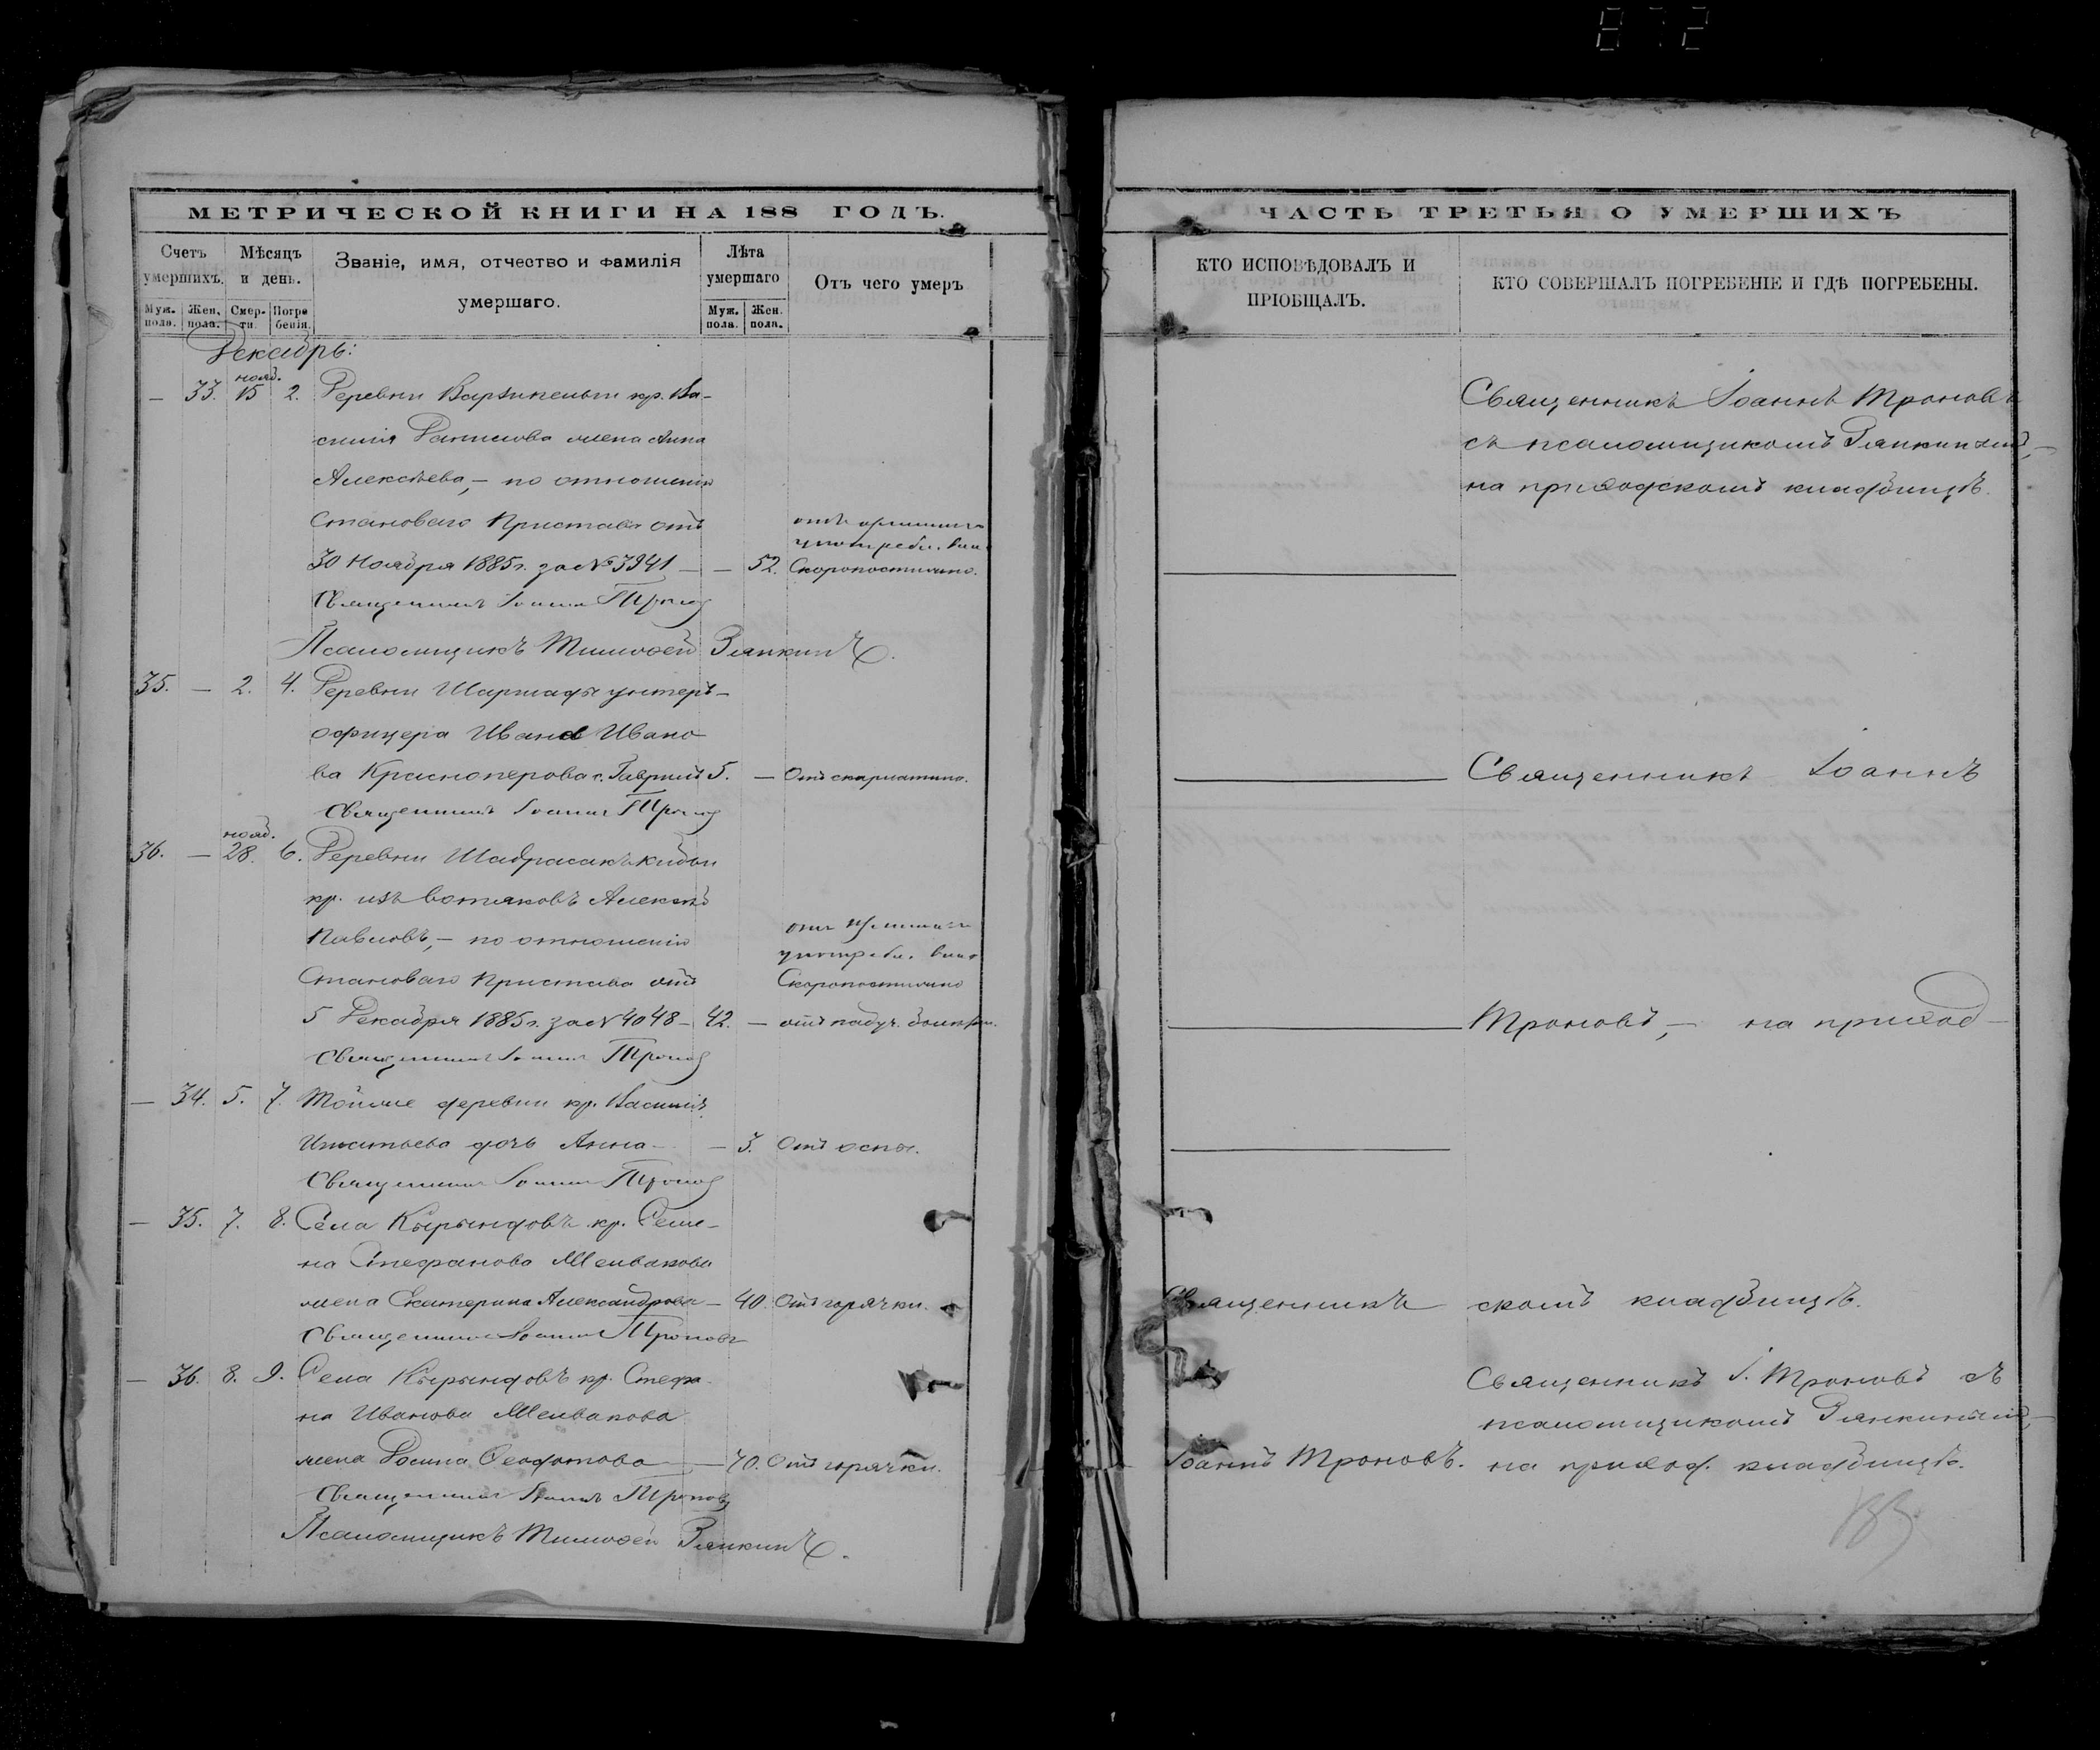 872
МЕТРИЧЕСКОЙ КНИГИ НА 188 ГОДЪ.
Счетъ умершихъ.
Мѣсяцъ и день.
Званіе, имя, отчество и фамилія умершаго.
Лѣта умершаго
Отъ чего умеръ
Муж. пола.
Жен. пола.
Смер- ти.
Погре бенія.
Муж. пола.
Жен. пола.
Декабрь:
нояб.
— 33. 15 2. Деревни кр. Ва-
силія Данилова жена Анна
Алексѣева, — по отношенію
Становаго Пристава отъ
отъ излишняго
употребл. вина
30 Ноября 1885 г. за № 3941 — — 52. Скоропостижно.
Священникъ Іоаннъ Троновъ
Псаломщикъ Тимоѳей Зяпкинъ.
35. — 2. 4. Деревни Шаршады унтеръ-
офицера Ивана Ивано-
ва Красноперова с. Гавріилъ 5. — Отъ скарлатины.
Священникъ Іоаннъ Троновъ
нояб.
36. — 28. 6. Деревни
кр. изъ вотяковъ Алексѣй
Павловъ, — по отношенію
отъ излишняго
употребл. вина
Становаго Пристава отъ Скоропостижно
5 Декабря 1885 г. за № 4048 — 42. — отъ падуч. болѣзни.
Священникъ Іоаннъ Троновъ
— 34. 5. 7. Той же деревни кр. Василія
Игнатьева дочь Анна — — 3. Отъ оспы.
Священникъ Іоаннъ Троновъ
— 35. 7. 8. Села Кырындовъ кр. Семе-
на Стефанова Мелвакова
жена Екатерина Александрова — 40. Отъ горячки.
Священникъ Іоаннъ Троновъ
— 36. 8. 9. Села Кырындовъ кр. Стефа-
на Иванова Мелвакова
жена Домна Ѳеодотова — 70. Отъ горячки.
Священникъ Іоаннъ Троновъ
Псаломщикъ Тимоѳей Зяпкинъ.
ЧАСТЬ ТРЕТЬЯ О УМЕРШИХЪ
КТО ИСПОВѢДОВАЛЪ И ПРІОБЩАЛЪ.
КТО СОВЕРШАЛЪ ПОГРЕБЕНІЕ И ГДѢ ПОГРЕБЕНЫ.
Священникъ Іоаннъ Троновъ
съ псаломщикомъ Зяпкинымъ, —
на приходскомъ кладбищѣ.
Священникъ Іоаннъ
Троновъ, — на приход-
Священникъ скомъ кладбищѣ.
Священникъ І. Троновъ съ
псаломщикомъ Зяпкинымъ, —
Іоаннъ Троновъ. на приход. кладбищѣ.